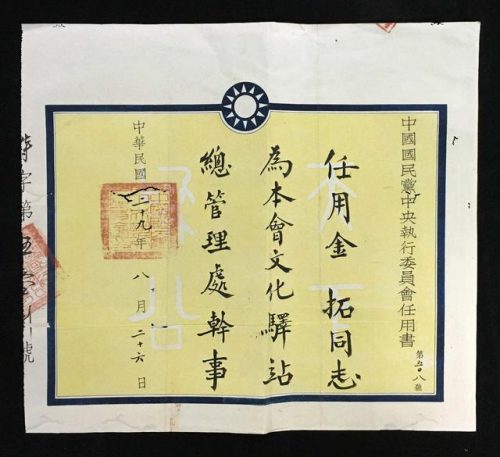 中國國民黨中央執行委員會任用書
第五〇八號
任用金 拓同志
為本會文化驛站
總管理處幹事
中華民國二十九年八月二十六日
字第
號